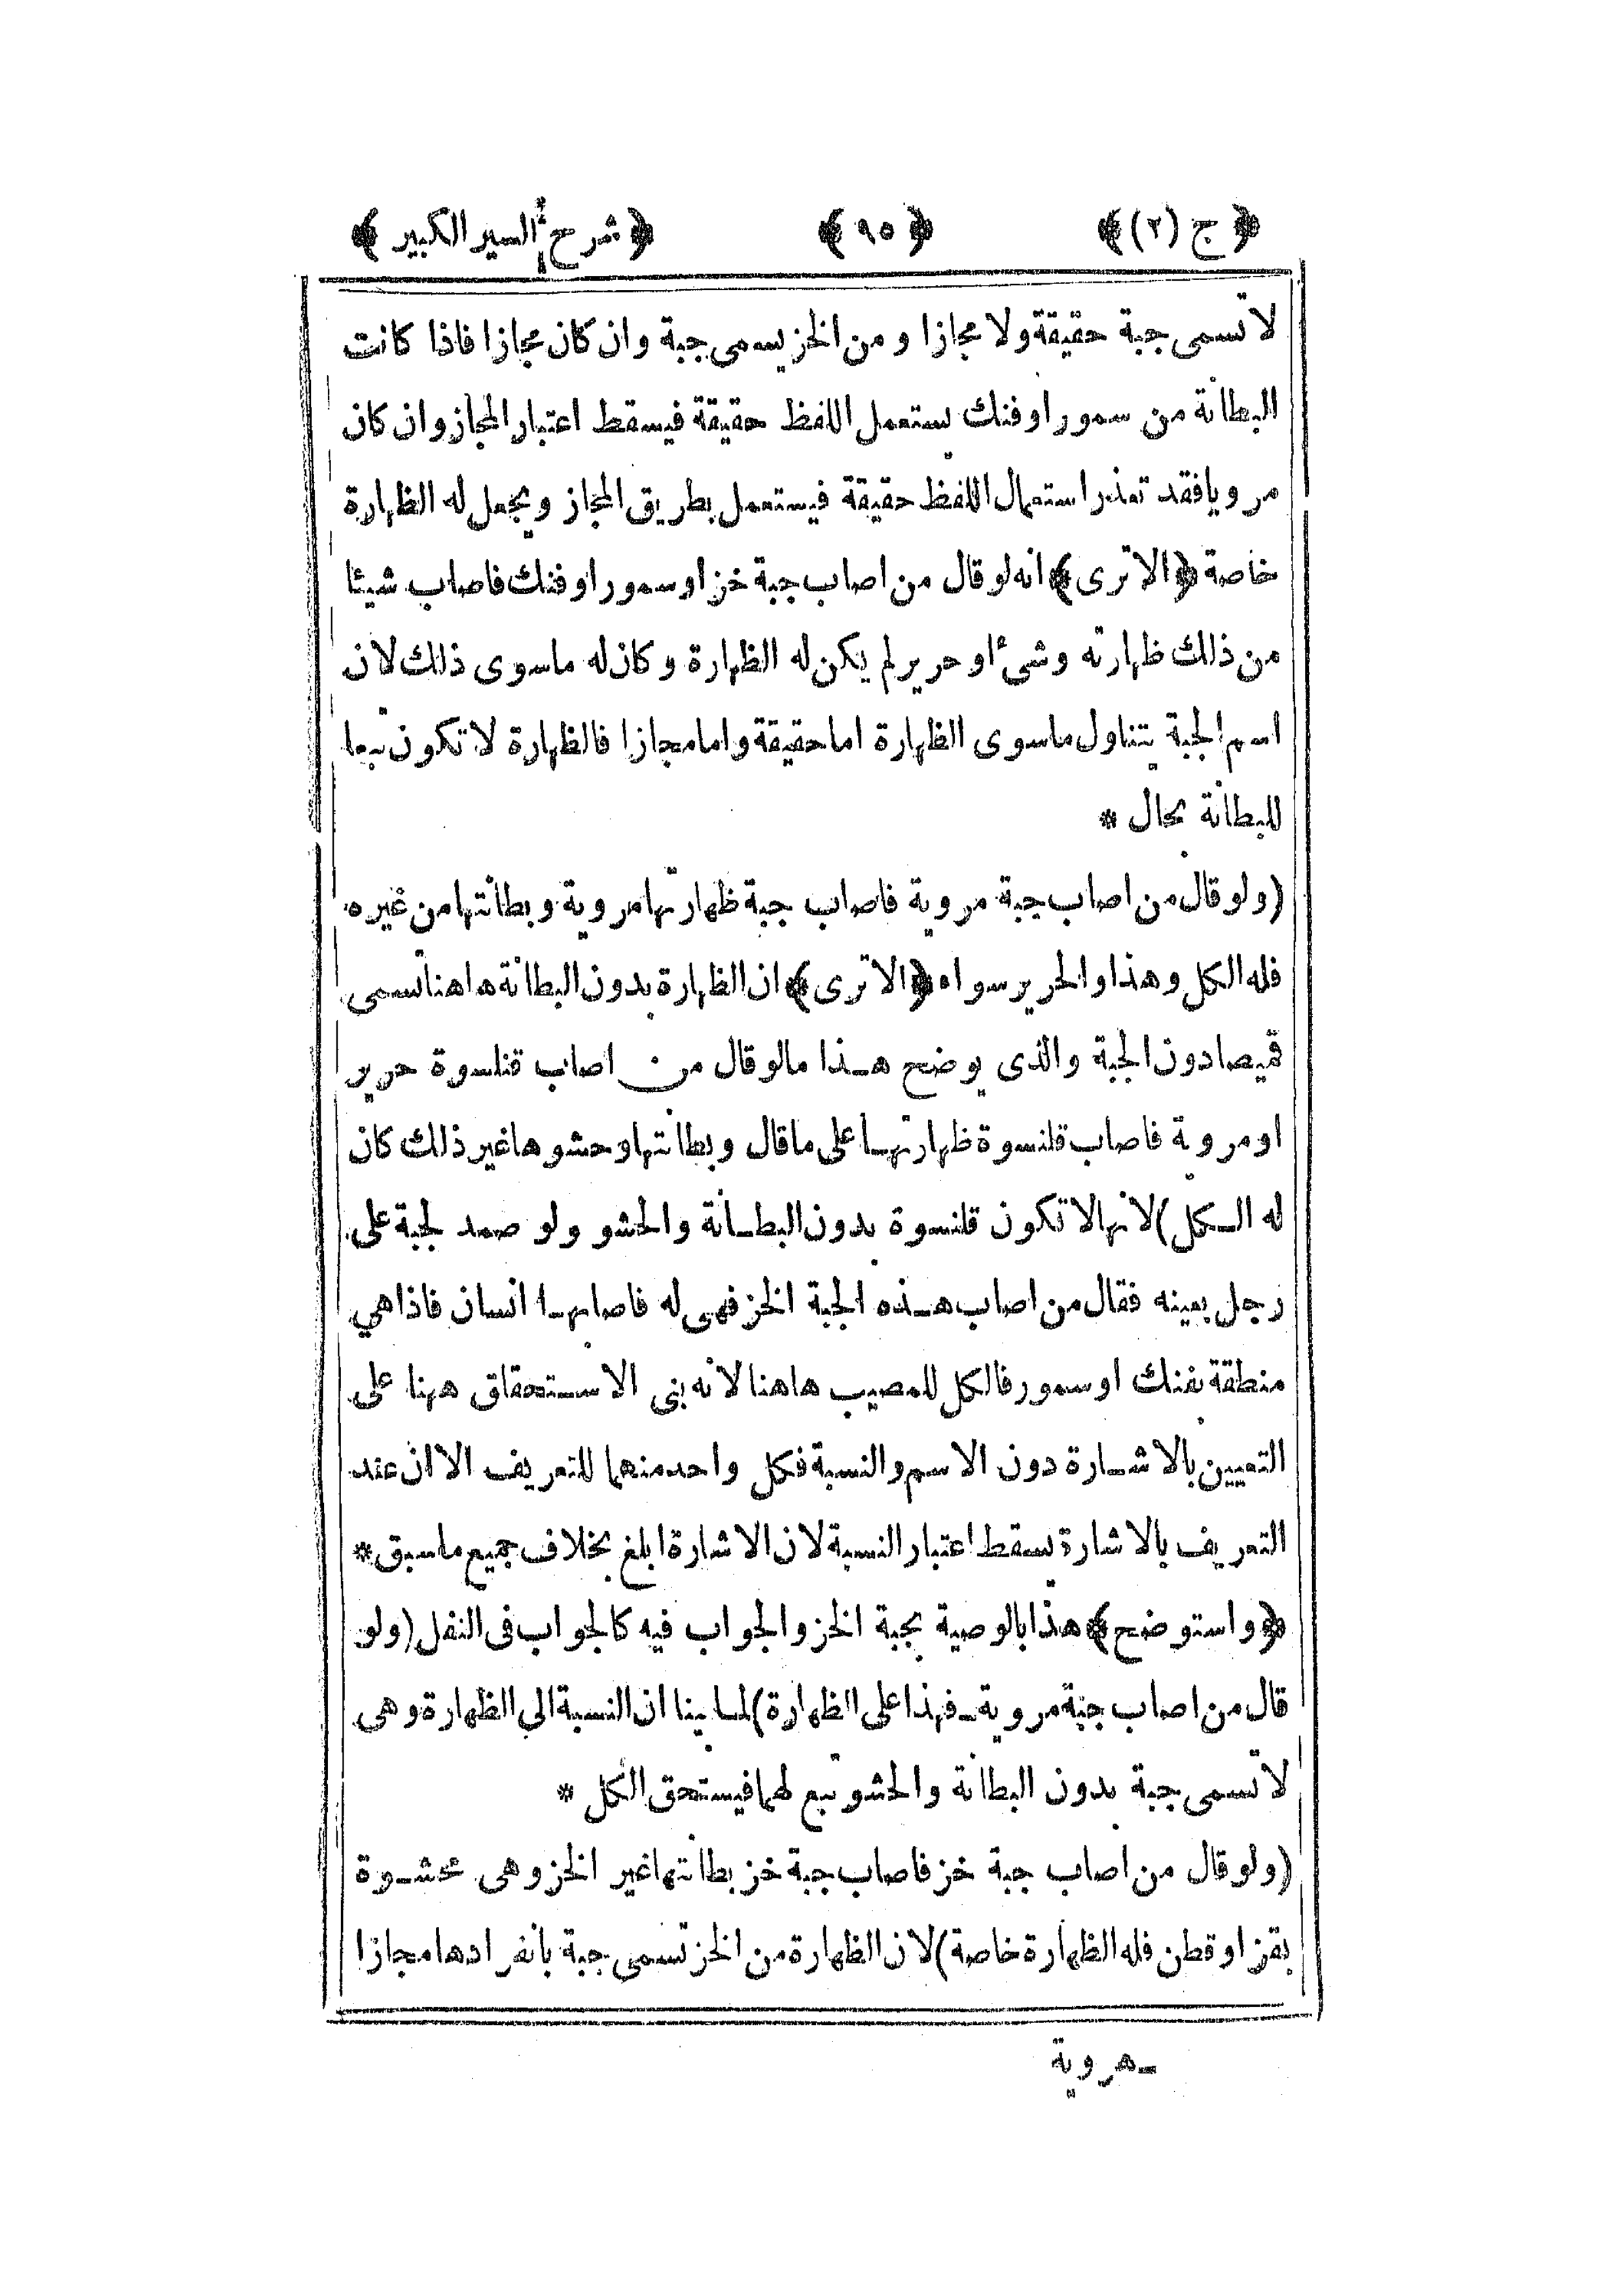 ﴿ ج (٢) ﴾ ﴿ ٩٥ ﴾ ﴿ شرح السير الكبير ﴾
لا تسمى جبة حقيقة ولا مجازا و من الخز يسمى جبة وان كان مجازا فاذا كانت
البطانة من سمور او فنك يستعمل اللفظ حقيقة فيسقط اعتبار المجاز وان كان
مر ويا فقد تعذر استعمال اللفظ حقيقة فيستعمل بطريق المجاز ويجعل له الظهارة
خاصة ﴿ الا ترى ﴾ انه لو قال من اصاب جبة خز او سمور او فنك فاصاب شيئا
من ذلك ظهارته وشئ او حرير لم يكن له الظهارة وكان له ما سوى ذلك لان
اسم الجبة يتناول ما سوى الظهارة اما حقيقة واما مجازا فالظهارة لا تكون تبعا
للبطانة بحال *
(ولو قال من اصاب جبة مروية فاصاب جبة ظهارتها مروية وبطانتها من غيره
فله الكل وهذا والحرير سواه ﴿ الا ترى ﴾ ان الظهارة بدون البطانة هاهنا تسمى
قميصا دون الجبة والذى يوضح هـذا ما لو قال من اصاب قنلسوة حرير
او مروية فاصاب قلنسوة ظهارتهـا على ما قال وبطانتها وحشوها غير ذلك كان
له الـكل) لانها لا تكون قلنسوة بدون البطـانة والحشو ولو صمد لجبة على
رجل بعينه فقال من اصاب هـذه الجبة الخز فهى له فاصابهـا انسان فاذا هي
منطقة بفنك او سمور فالكل للمصيب هاهنا لانه بنى الاسـتحقاق ههنا على
التعيين بالاشـارة دون الاسم والنسبة فكل واحد منهما للتعريف الا ان عند
التعريف بالاشارة يسقط اعتبار النسبة لان الاشارة ابلغ بخلاف جميع ما سبق *
﴿ واستوضح ﴾ هذا بالوصية بجبة الخز والجواب فيه كالجواب فى النفل (ولو
قال من اصاب جبة مروية ـ فهذا على الظهارة) لما بينا ان النسبة الى الظهارة وهى
لا تسمى جبة بدون البطانة والحشو تبع لهما فيستحق الكل *
(ولو قال من اصاب جبة خز فاصاب جبة خز بطانتها غير الخز وهى محشـوة
بقز او قطن فله الظهارة خاصة) لان الظهارة من الخز تسمى جبة بانفرادها مجازا
ـهروية